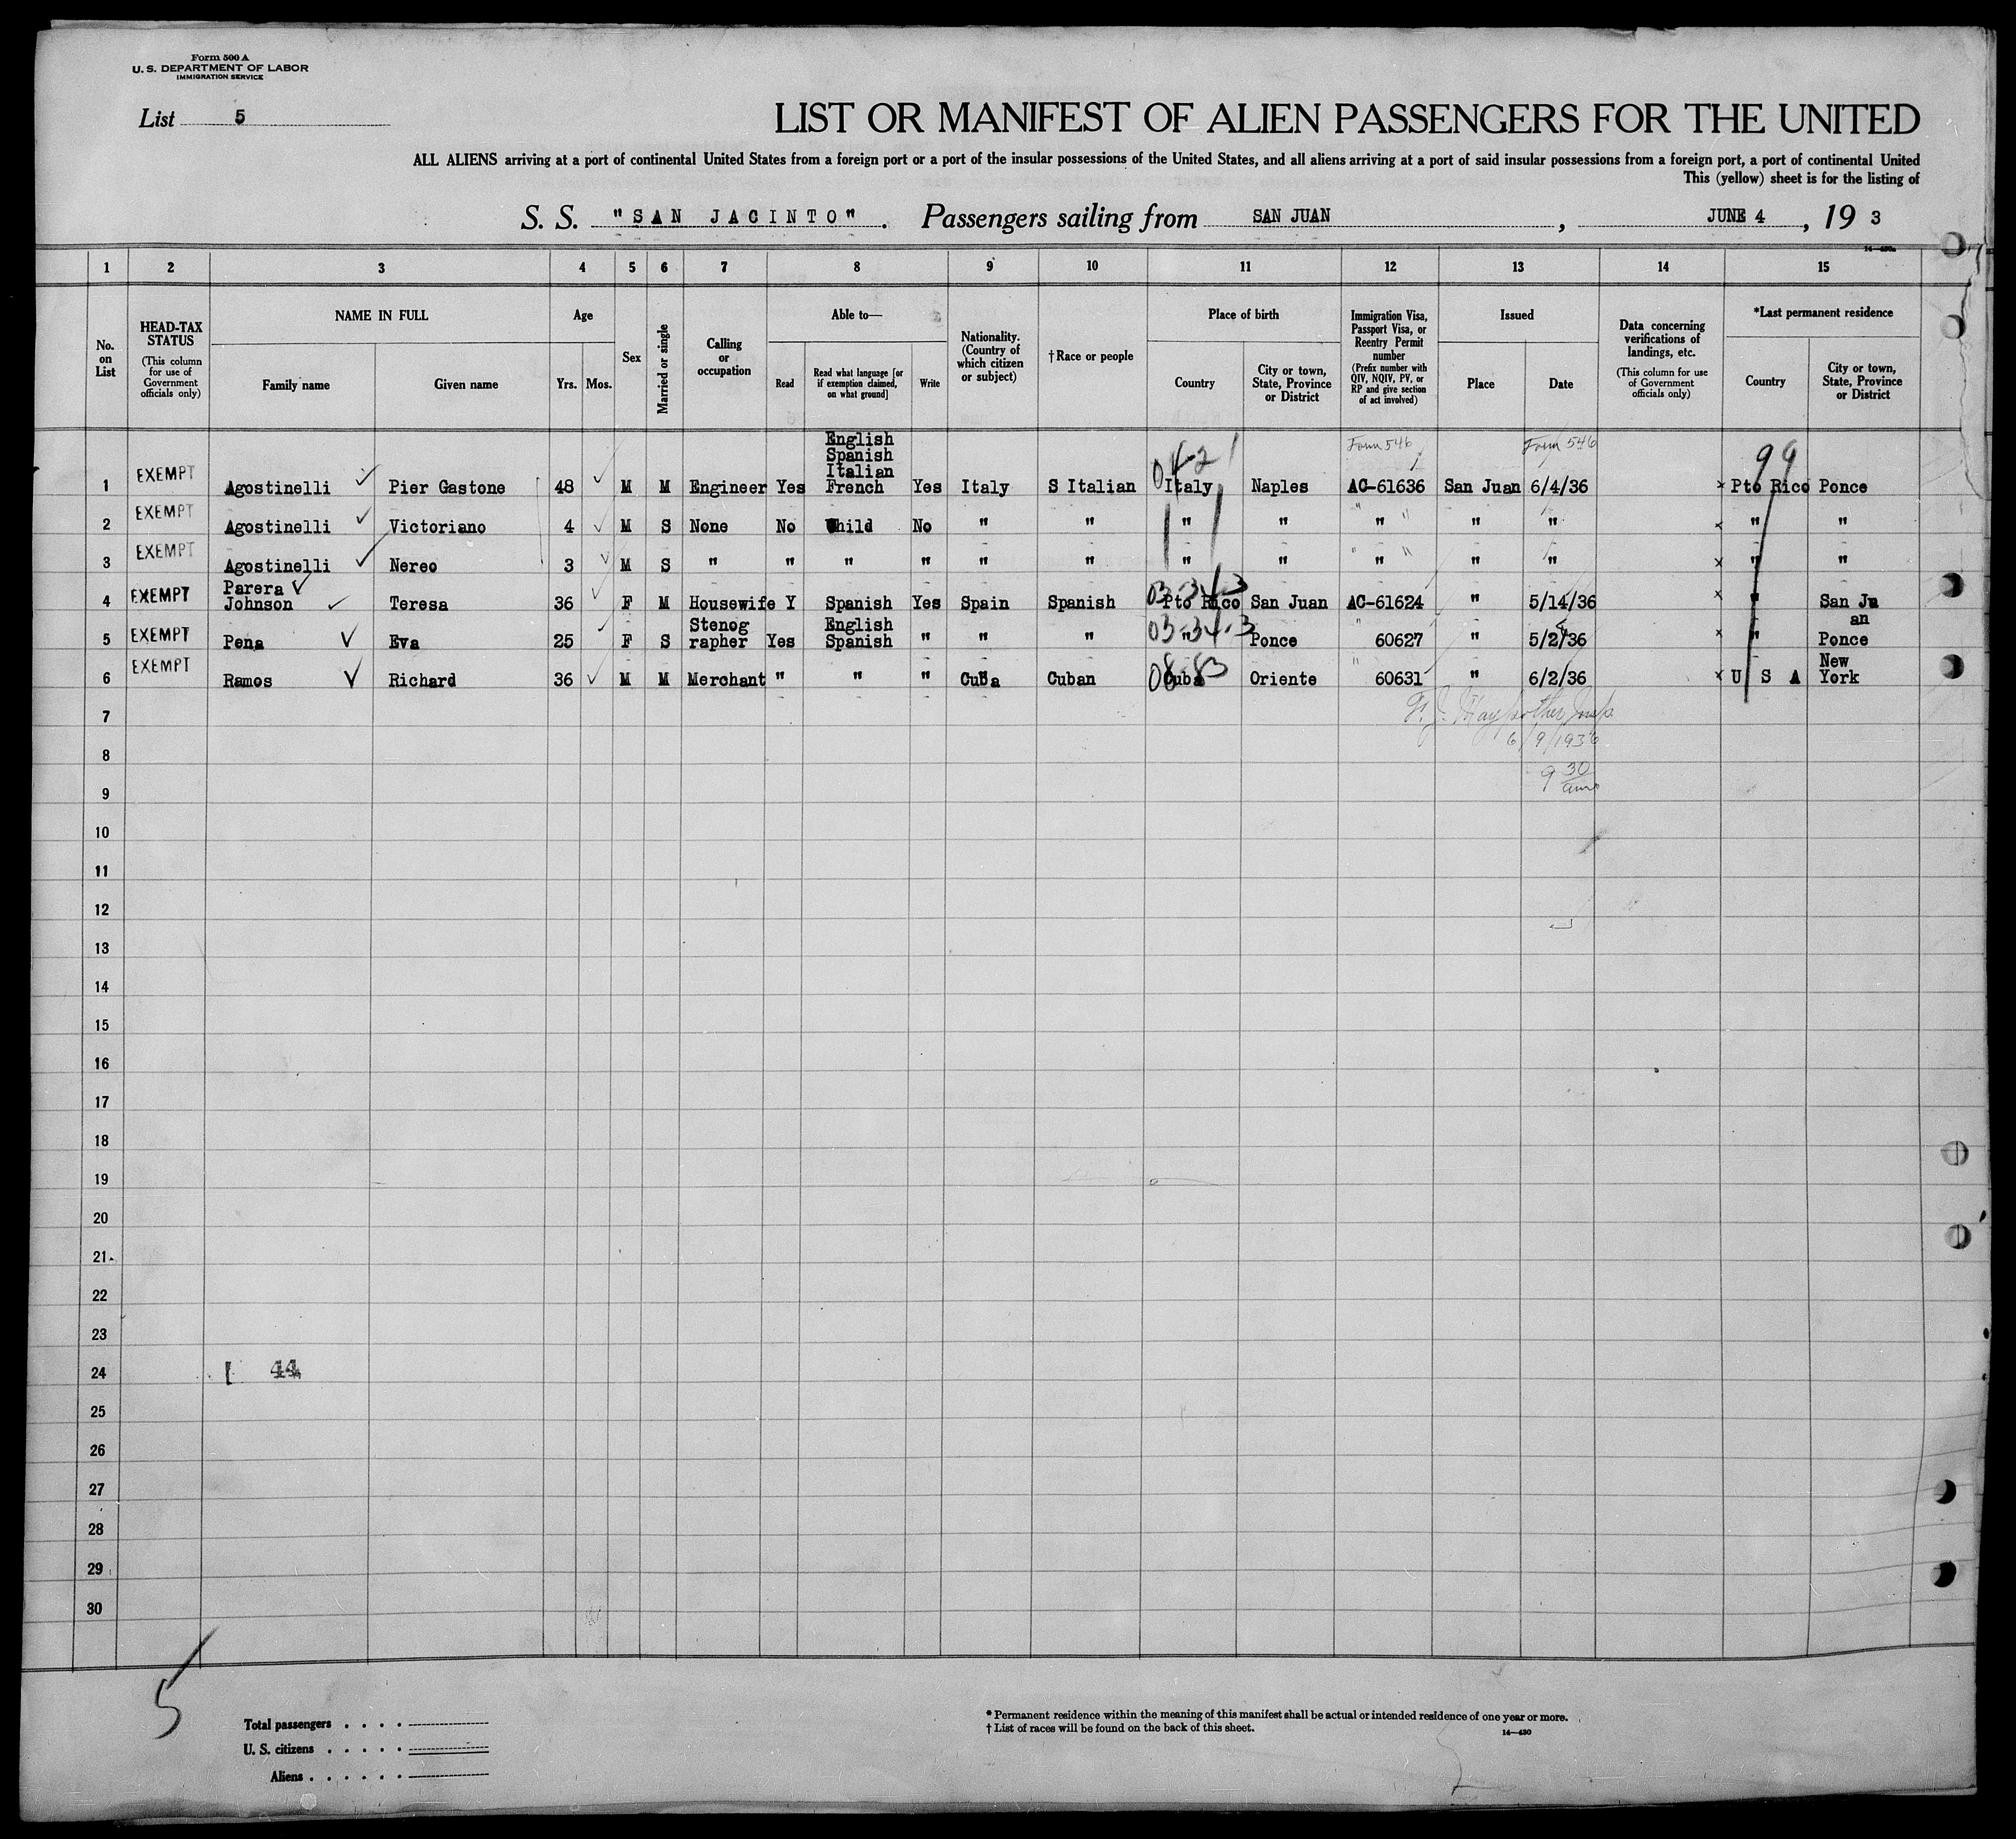 Form 500 A
U. S. DEPARTMENT OF LABOR
IMMIGRATION SERVICE
List 5
LIST OR MANIFEST OF ALIEN PASSENGERS FOR THE UNITED
ALL ALIENS arriving at a port of continental United States from a foreign port or a port of the insular possessions of the United States, and all aliens arriving at a port of said insular possessions from a foreign port, a port of continental United
This (yellow) sheet is for the listing of
S. S. "SAN JACINTO". Passengers sailing from SAN JUAN, JUNE 4, 19 3
1 2 3 4 5 6 7 8 9 10 11 12 13 14 15
No. on List
HEAD-TAX STATUS
(This column for use of Government officials only)
NAME IN FULL
Family name Given name
Age
Yrs. Mos.
Sex
Married or single
Calling or occupation
Able to—
Read
Read what language [or if exemption claimed, on what ground]
Write
Nationality. (Country of which citizen or subject)
† Race or people
Place of birth
Country
City or town, State, Province or District
Immigration Visa, Passport Visa, or Reentry Permit number
(Prefix number with QIV, NQIV, PV, or RP and give section of act involved)
Issued
Place Date
Data concerning verifications of landings, etc.
(This column for use of Government officials only)
*Last permanent residence
Country
City or town, State, Province or District
Form 546 Form 546
99
English
Spanish
Italian
1 EXEMPT Agostinelli Pier Gastone 48 M M Engineer Yes French Yes Italy S Italian Italy Naples AC-61636 San Juan 6/4/36 x Pto Rico Ponce
2 EXEMPT Agostinelli Victoriano 4 M S None No Child No " " " " " " " x " "
3 EXEMPT Agostinelli Nereo 3 M S " " " " " " " " " " " x " "
Parera
4 EXEMPT Johnson Teresa 36 F M Housewife Y Spanish Yes Spain Spanish 03-34-3 Pto Rico San Juan AC-61624 " 5/14/36 x " San Ju
an
Stenog English
5 EXEMPT Pena Eva 25 F S rapher Yes Spanish " " " 03-34-3 " Ponce 60627 " 5/2/36 x " Ponce
New
6 EXEMPT Ramos Richard 36 M M Merchant " " " Cuba Cuban Cuba Oriente 60631 " 6/2/36 x U S A York
7
6/9/1936
8
9 30
am
9
10
11
12
13
14
15
16
17
18
19
20
21
22
23
24 44
25
26
27
28
29
30
5
Total passengers . . . .
U. S. citizens . . . . .
Aliens . . . . . .
* Permanent residence within the meaning of this manifest shall be actual or intended residence of one year or more.
† List of races will be found on the back of this sheet.
14—430